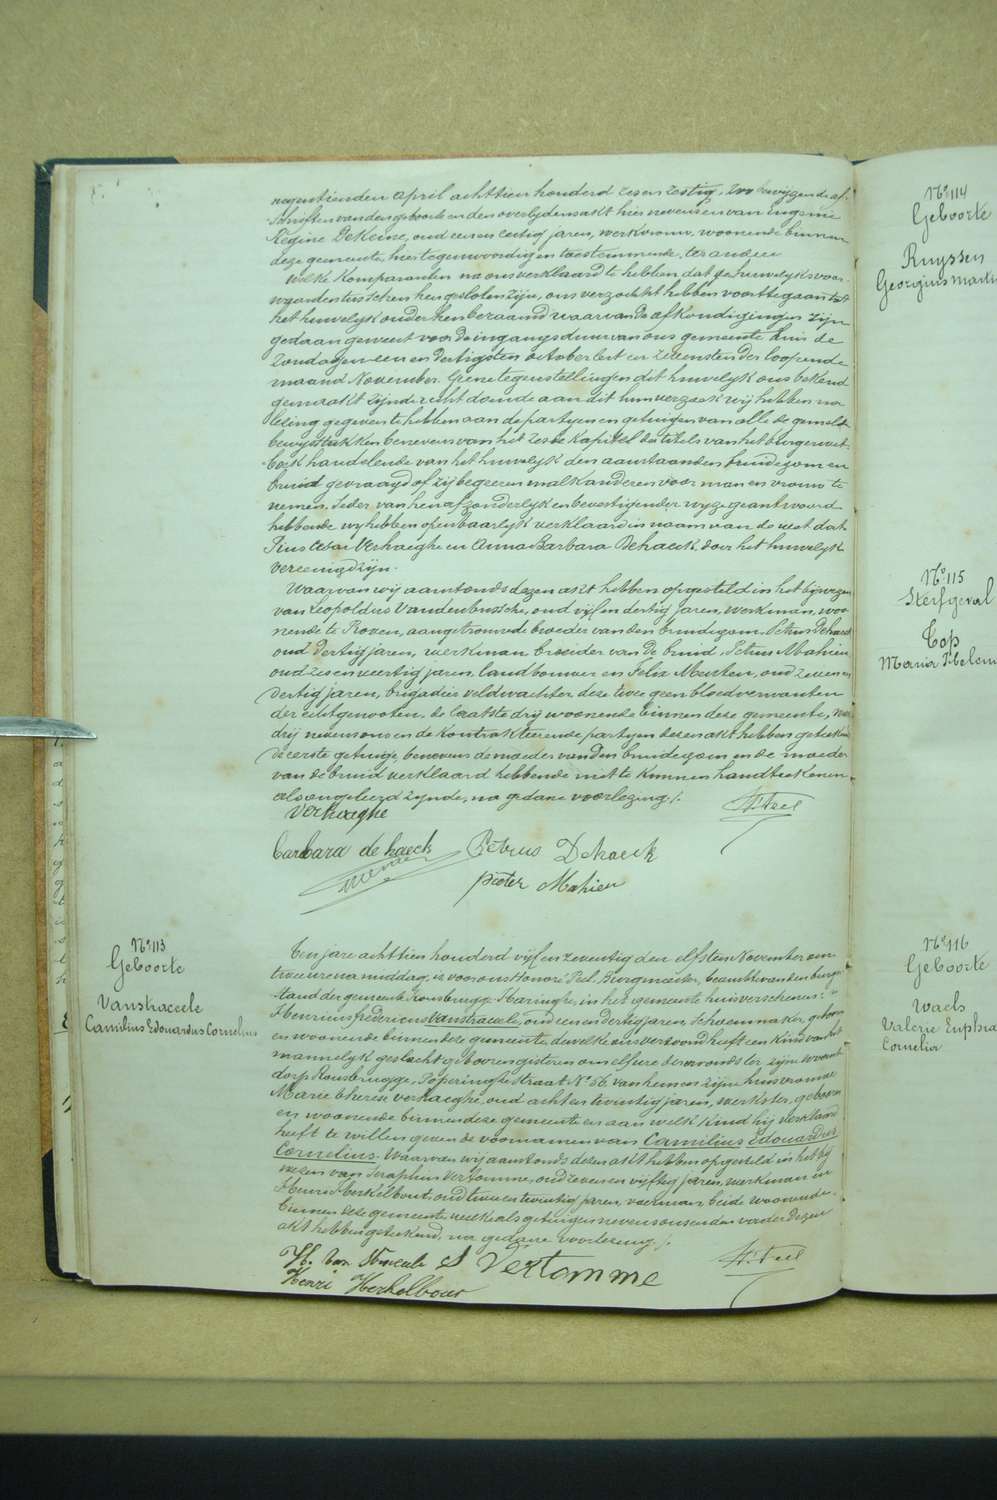 negentienden april achttien honderd zesen zestig. Zoo bewyzen de af-
schriften van den geboorte en den overlydensakt hier nevens en van Eugenie
Regine DeKeine, oud een en zestig jaren, werkvrouw, woonende binnen
deze gemeente, hier tegenwoordig en toestemmende, ter andere
Welke komparanten na ons verklaard te hebben dat ge huwelyksvoor-
waarden tusschen hen gesloten zijn, ons verzocht hebben voort te gaan tot
het huwelyk onder hen beraamd waarvan de afkondigingen zijn
gedaan geweest voor de ingangsdeur van ons gemeente huis de
zondagen een en dertigsten october lest en zevensten der loopende
maand November. Geene tegenstellingen dit huwelyk ons bekend
gemaakt zijnde recht doende aan dit hun verzoek wij hebben na
lezing gegeven te hebben aan de partyen en getuigen van alle de gemelde
bewysstukken benevens van het zesde kapitel des titels van het burger wet-
boek handelende van het huwelyk den aanstaanden bruidegom en
bruid gevraagd of zij begeeren malkanderen voor man en vrouw te
nemen. Ieder van hen afzonderlyk en bevestigender wyze geantwoord
hebbende wy hebben openbaarlyk verklaard in naam van de wet dat
Pius Cesar Verhaeghe en Anna Barbara Dehaeck, door het huwelyk
vereenigd zijn.
Waarvan wij aanstonds dezen akt hebben opgesteld in het bijwezen
van Leopoldus Vandenbussche, oud vijf en dertig jaren, werkman, woo-
nende te Proven, aangetrouwde broeder van den bruidegom Petrus Dehaeck
oud dertig jaren, werkman broeder van de bruid, Petrus Mahieu
oud zes en veertig jaren, landbouwer en Felix Merten, oud zeven en
dertig jaren, brigadier veldwachter deze twee geen bloedverwanten
der echtgenooten, de laatste drij woonende binnen deze gemeente, welke
drij nevens ons en de kontrakteerende partyen dezen akt hebben geteekend
de eerste getuige, benevens de moeder van den bruidegom en de moeder
van de bruid verklaard hebbende niet te kunnen handteekenen
als ongeleerd zijnde, na gedane voorlezing /.
Verhaeghe
H. Peel
barbara de haeck Petrus Dehaeck
Merten
pieter Mahieu
N° 113
Geboorte
Vanstraceele
Camilius Edouardus Cornelius
Ten jare achttien honderd vijf en zeventig den elfsten November om
twee uren namiddag, is voor ons Honoré Peel, Burgmeester, beambte van den burger-
stand der gemeente Rousbrugge Haringhe, in het gemeente huis verschenen:
Henricus fredericus Vanstraceele, oud een en dertig jaren, schoenmaker, geboren
en woonende binnen deze gemeente, dewelke ons vertoond heeft een kind van het
mannelyk geslacht geboren gisteren om elf ure des avonds ter zijne woonst
dorp Rousbrugge, Poperinghe straat N° 56, van hem en zijne huisvrouw
Marie therese verhaeghe, oud acht en twintig jaren, werkster, geboren
en woonende binnen deze gemeente en aan welk kind hij verklaard
heeft te willen geven de voornamen van Camilius Edouardus
Cornelius. Waarvan wij aanstonds dezen akt hebben opgesteld in het bij
wezen van Seraphin Vertomme, oud zeven en vijftig jaren, werkman en
Henri Herkelbout, oud twee en twintig jaren, voerman beide woonende
binnen deze gemeente welke als getuigen nevens ons en den vader dezen
akt hebben geteekend, na gedane voorlezing /.
H. Van Straceele S Vertomme
H. Peel
Henri Herkelbout
N° 114
Geboorte
Ruyssen
Georgius Marti
N° 115
Sterfgeval
Top
N° 116
Geboorte
Waels
Valerie Euphra
Cornelia